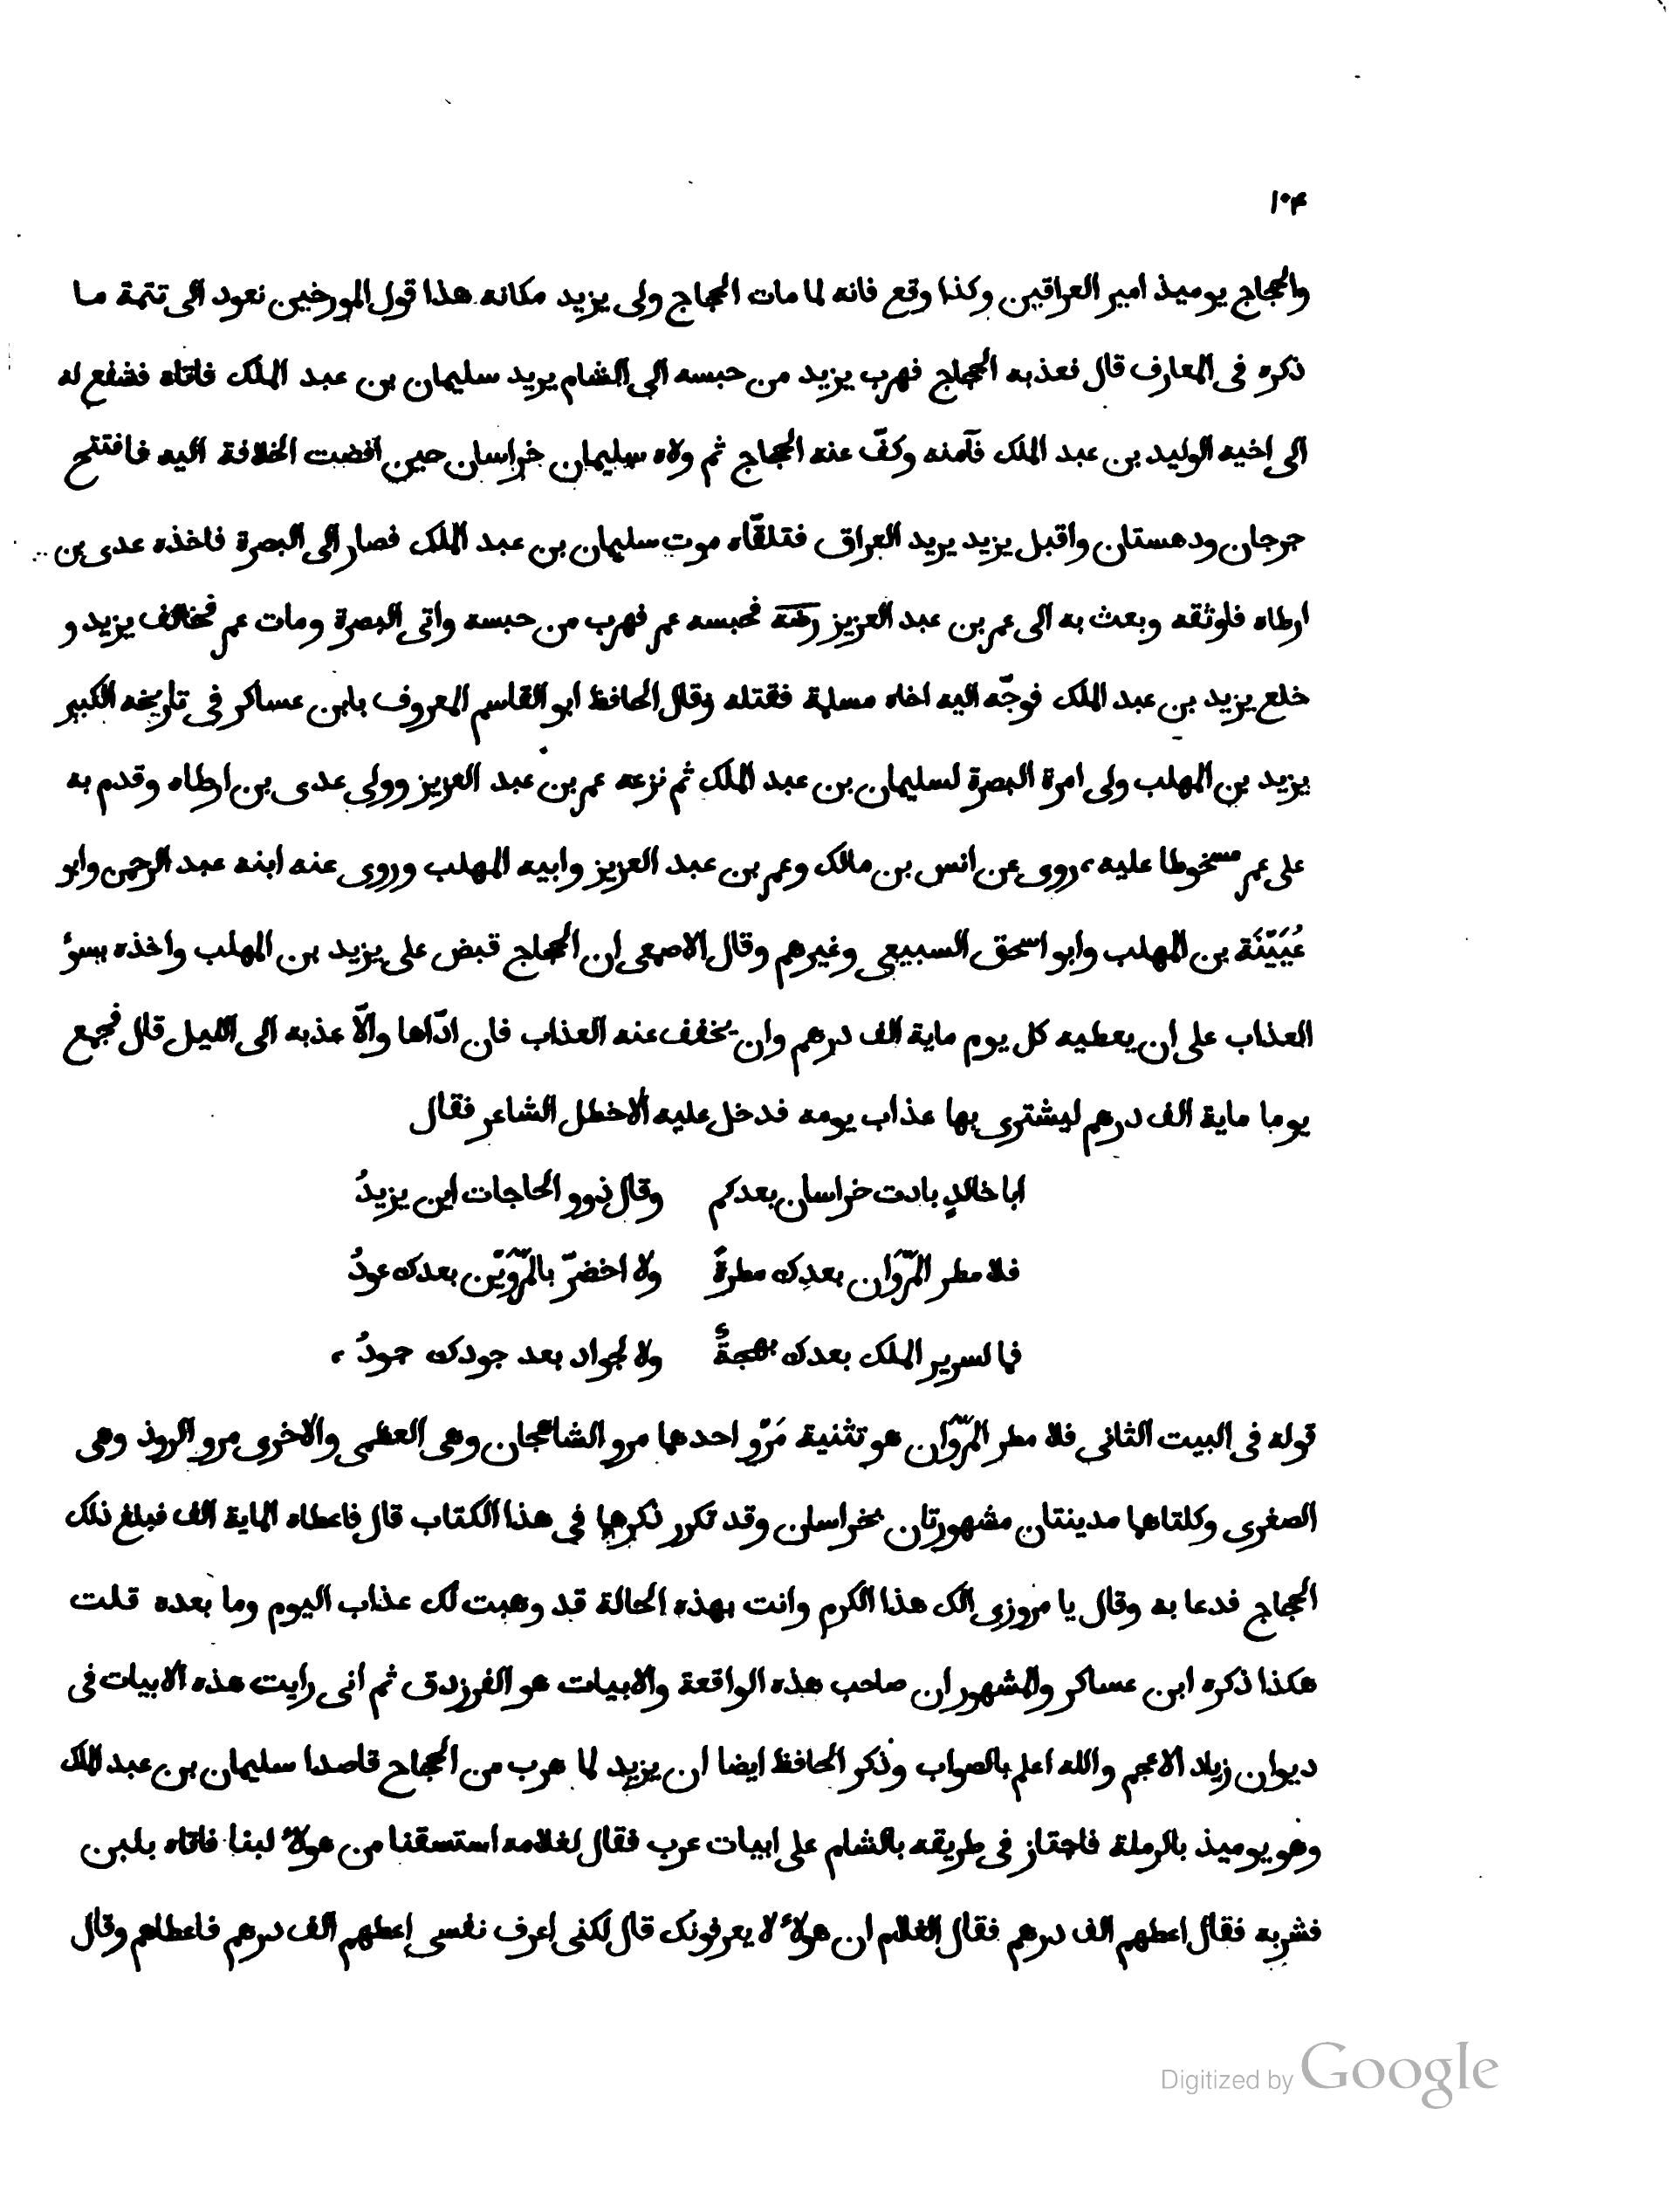 ١٠۴
والحجاج يوميذ امير العراقين وكذا وقع فانه لما مات الحجاج ولى يزيد مكانه هذا قول المورخين نعود الى تتمة ما
ذكره فى المعارف قال فعذبه الحجاج فهرب يزيد من حبسه الى الشام يريد سليمان بن عبد الملك فاتاه فشفع له
الى اخيه الوليد بن عبد الملك فآمنه وكفّ عنه الحجاج ثم ولاه سليمان خراسان حين افضت الخلافة اليه فافتتح
جرجان ودهستان واقبل يزيد يريد العراق فتلقّاه موت سليمان بن عبد الملك فصار الى البصرة فاخذه عدى بن
ارطاه فاوثقه وبعث به الى عمر بن عبد العزيز رضه فحبسه عمر فهرب من حبسه واتى البصرة ومات عمر فخالف يزيد و
خلع يزيد بن عبد الملك فوجّه اليه اخاه مسلمة فقتله وقال الحافظ ابو القاسم المعروف بابن عساكر فى تاريخه الكبير
يزيد بن المهلب ولى امرة البصرة لسليمان بن عبد الملك ثم نزعه عمر بن عبد العزيز وولى عدى بن ارطاه وقدم به
على عمر مسخوطا عليه، روى عن انس بن مالك وعمر بن عبد العزيز وابيه المهلب وروى عنه ابنه عبد الرحمن وابو
عُيَيْنَة بن المهلب وابو اسحق السبيعى وغيرهم وقال الاصمعى ان الحجاج قبض على يزيد بن المهلب واخذه بسوٴ
العذاب على ان يعطيه كل يوم ماية الف درهم وان يخفف عنه العذاب فان ادّاها والّا عذبه الى الليل قال فجمع
يوما ماية الف درهم ليشترى بها عذاب يومه فدخل عليه الاخطل الشاعر فقال
ابا خالدٍ بادت خراسان بعدكم وقال ذوو الحاجات اين يزيدُ
فلا مطر المَرْوَان بعدك مطرةً ولا اخضرّ بالمَرْوَيْن بعدك عودُ
فما لسرير الملك بعدك بهجةٌ ولا لجواد بعد جودك جودُ ،
قوله فى البيت الثانى فلا مطر المَرْوَان هو تثنية مَرْو احدهما مرو الشاهجان وهى العظمى والاخرى مرو الروذ وهى
الصغرى وكلتاهما مدينتان مشهورتان بخراسان وقد تكرر ذكرهما فى هذا الكتاب قال فاعطاه الماية الف فبلغ ذلك
الحجاج فدعا به وقال يا مروزى الك هذا الكرم وانت بهذه الحالة قد وهبت لك عذاب اليوم وما بعده قلت
هكذا ذكره ابن عساكر والمشهور ان صاحب هذه الواقعة والابيات هو الفرزدق ثم انى رايت هذه الابيات فى
ديوان زياد الاعجم والله اعلم بالصواب وذكر الحافظ ايضا ان يزيد لما هرب من الحجاج قاصدا سليمان بن عبد الملك
وهو يوميذ بالرملة فاجتاز فى طريقه بالشام على ابيات عرب فقال لغلامه استسقنا من هولآٴ لبنا فاتاه بلبن
فشربه فقال اعطهم الف درهم فقال الغلام ان هولآٴ لا يعرفونك قال لكنى اعرف نفسى اعطهم الف درهم فاعطاهم وقال
Digitized by Google